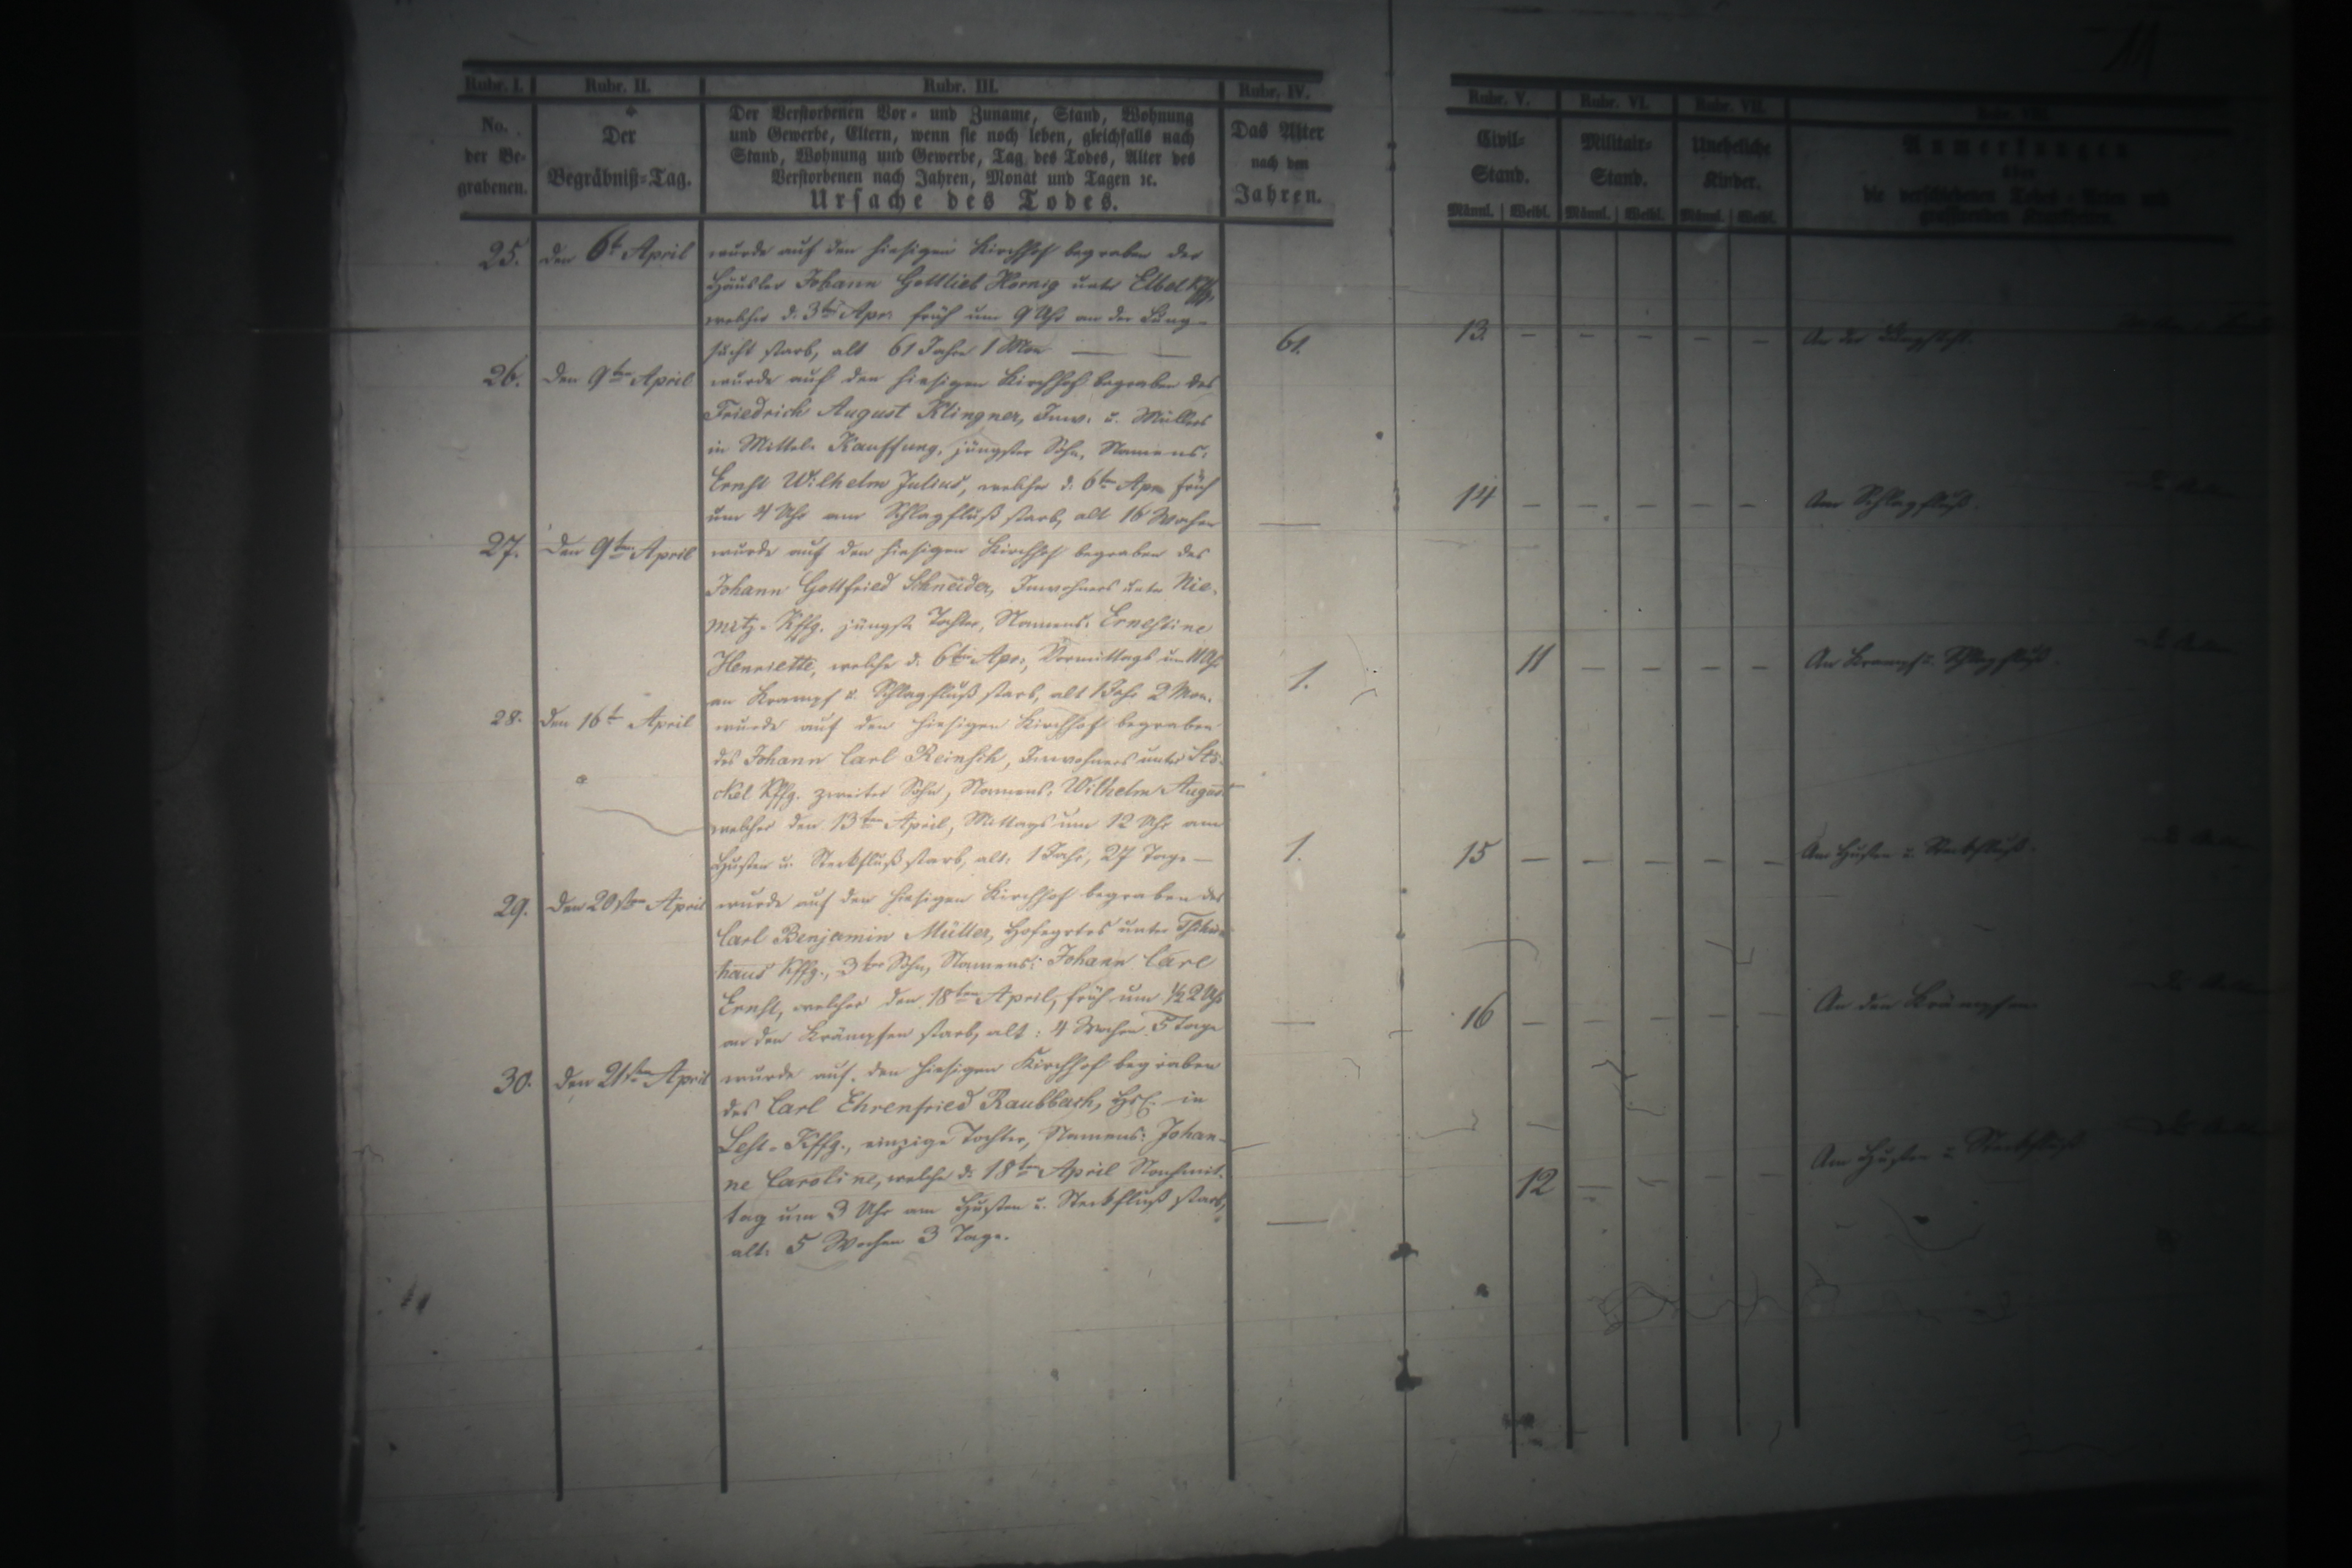 11
Rubr. I.
Rubr. II.
Rubr. III.
Rubr. IV.
Rubr. V.
Rubr. VI.
Rubr. VII.
Rubr. VIII.
No.
der Be-
grabenen.
Der
Begräbniß-Tag.
Der Verstorbenen Vor- und Zuname, Stand, Wohnung
und Gewerbe, Eltern, wenn sie noch leben, gleichfalls nach
Stand, Wohnung und Gewerbe, Tag des Todes, Alter des
Verstorbenen nach Jahren, Monat und Tagen ꝛc.
Ursache des Todes.
Das Alter
nach den
Jahren.
Civil-
Stand.
Männl. Weibl.
Militair-
Stand.
Männl. Weibl.
Uneheliche
Kinder.
Männl. Weibl.
Anmerkungen
über
die verschiedenen Todes-Arten und
grassirenden Krankheiten.
25. den 6t April wurde auf den hiesigen Kirchhof begraben der
Häusler Johann Gottlieb Hornig unter Elbel Kffg,
welcher d. 3ten Apr: früh um 9 Uhr an der Lung-
sucht starb, alt 61 Jahre 1 Mon — — 61. 13. — — — — — An der Lungsucht.
26. den 9ten April wurde auf den hiesigen Kirchhof begraben des
Friedrich August Klingner, Inw. u. Müllers
in Mittel-Kauffung, jüngster Sohn, Namens:
Ernst Wilhelm Julius, welcher d. 6ten Apr. früh
um 4 Uhr am Schlagfluß starb, alt 16 Wochen — 14 — — — — — Am Schlagfluß.
27. den 9ten April wurde auf den hiesigen Kirchhof begraben des
Johann Gottfried Schneider, Inwohners unter Nie-
mitz-Kffg. jüngste Tochter, Namens: Ernestine
Henriette, welche d. 6ten Apr., Vormittags um 11 Uhr
an Krampf u. Schlagfluß starb, alt 1 Jahr 2 Mon. 1. 11 — — — — An Krampf u. Schlagfluß.
28. den 16t April wurde auf den hiesigen Kirchhof begraben
des Johann Carl Reinsch, Inwohners unter Stö-
ckel Kffg. zweiter Sohn, Namens: Wilhelm August
welcher den 13ten April, Mittags um 12 Uhr am
Husten u. Steckfluß starb, alt: 1 Jahr, 27 Tage — 1. 15 — — — — — Am Husten u. Steckfluß.
29. den 20sten April wurde auf den hiesigen Kirchhof begraben des
Carl Benjamin Müller, unter
haus Kffg., 3ter Sohn, Namens: Johann Carl
Ernst, welcher den 18ten April, früh um ½2 Uhr
an den Krämpfen starb, alt: 4 Wochen 5 Tage — 16 — — — — — An den Krämpfen
30. den 21sten April wurde auf den hiesigen Kirchhof begraben
des Carl Ehrenfried Raubbach, Hsl. in
Lest-Kffg., einzige Tochter, Namens: Johan-
ne Caroline, welche d. 18ten April Nachmit-
tag um 3 Uhr am Husten u. Steckfluß starb,
alt: 5 Wochen 3 Tage. — 12 — — — — Am Husten u. Steckfluß